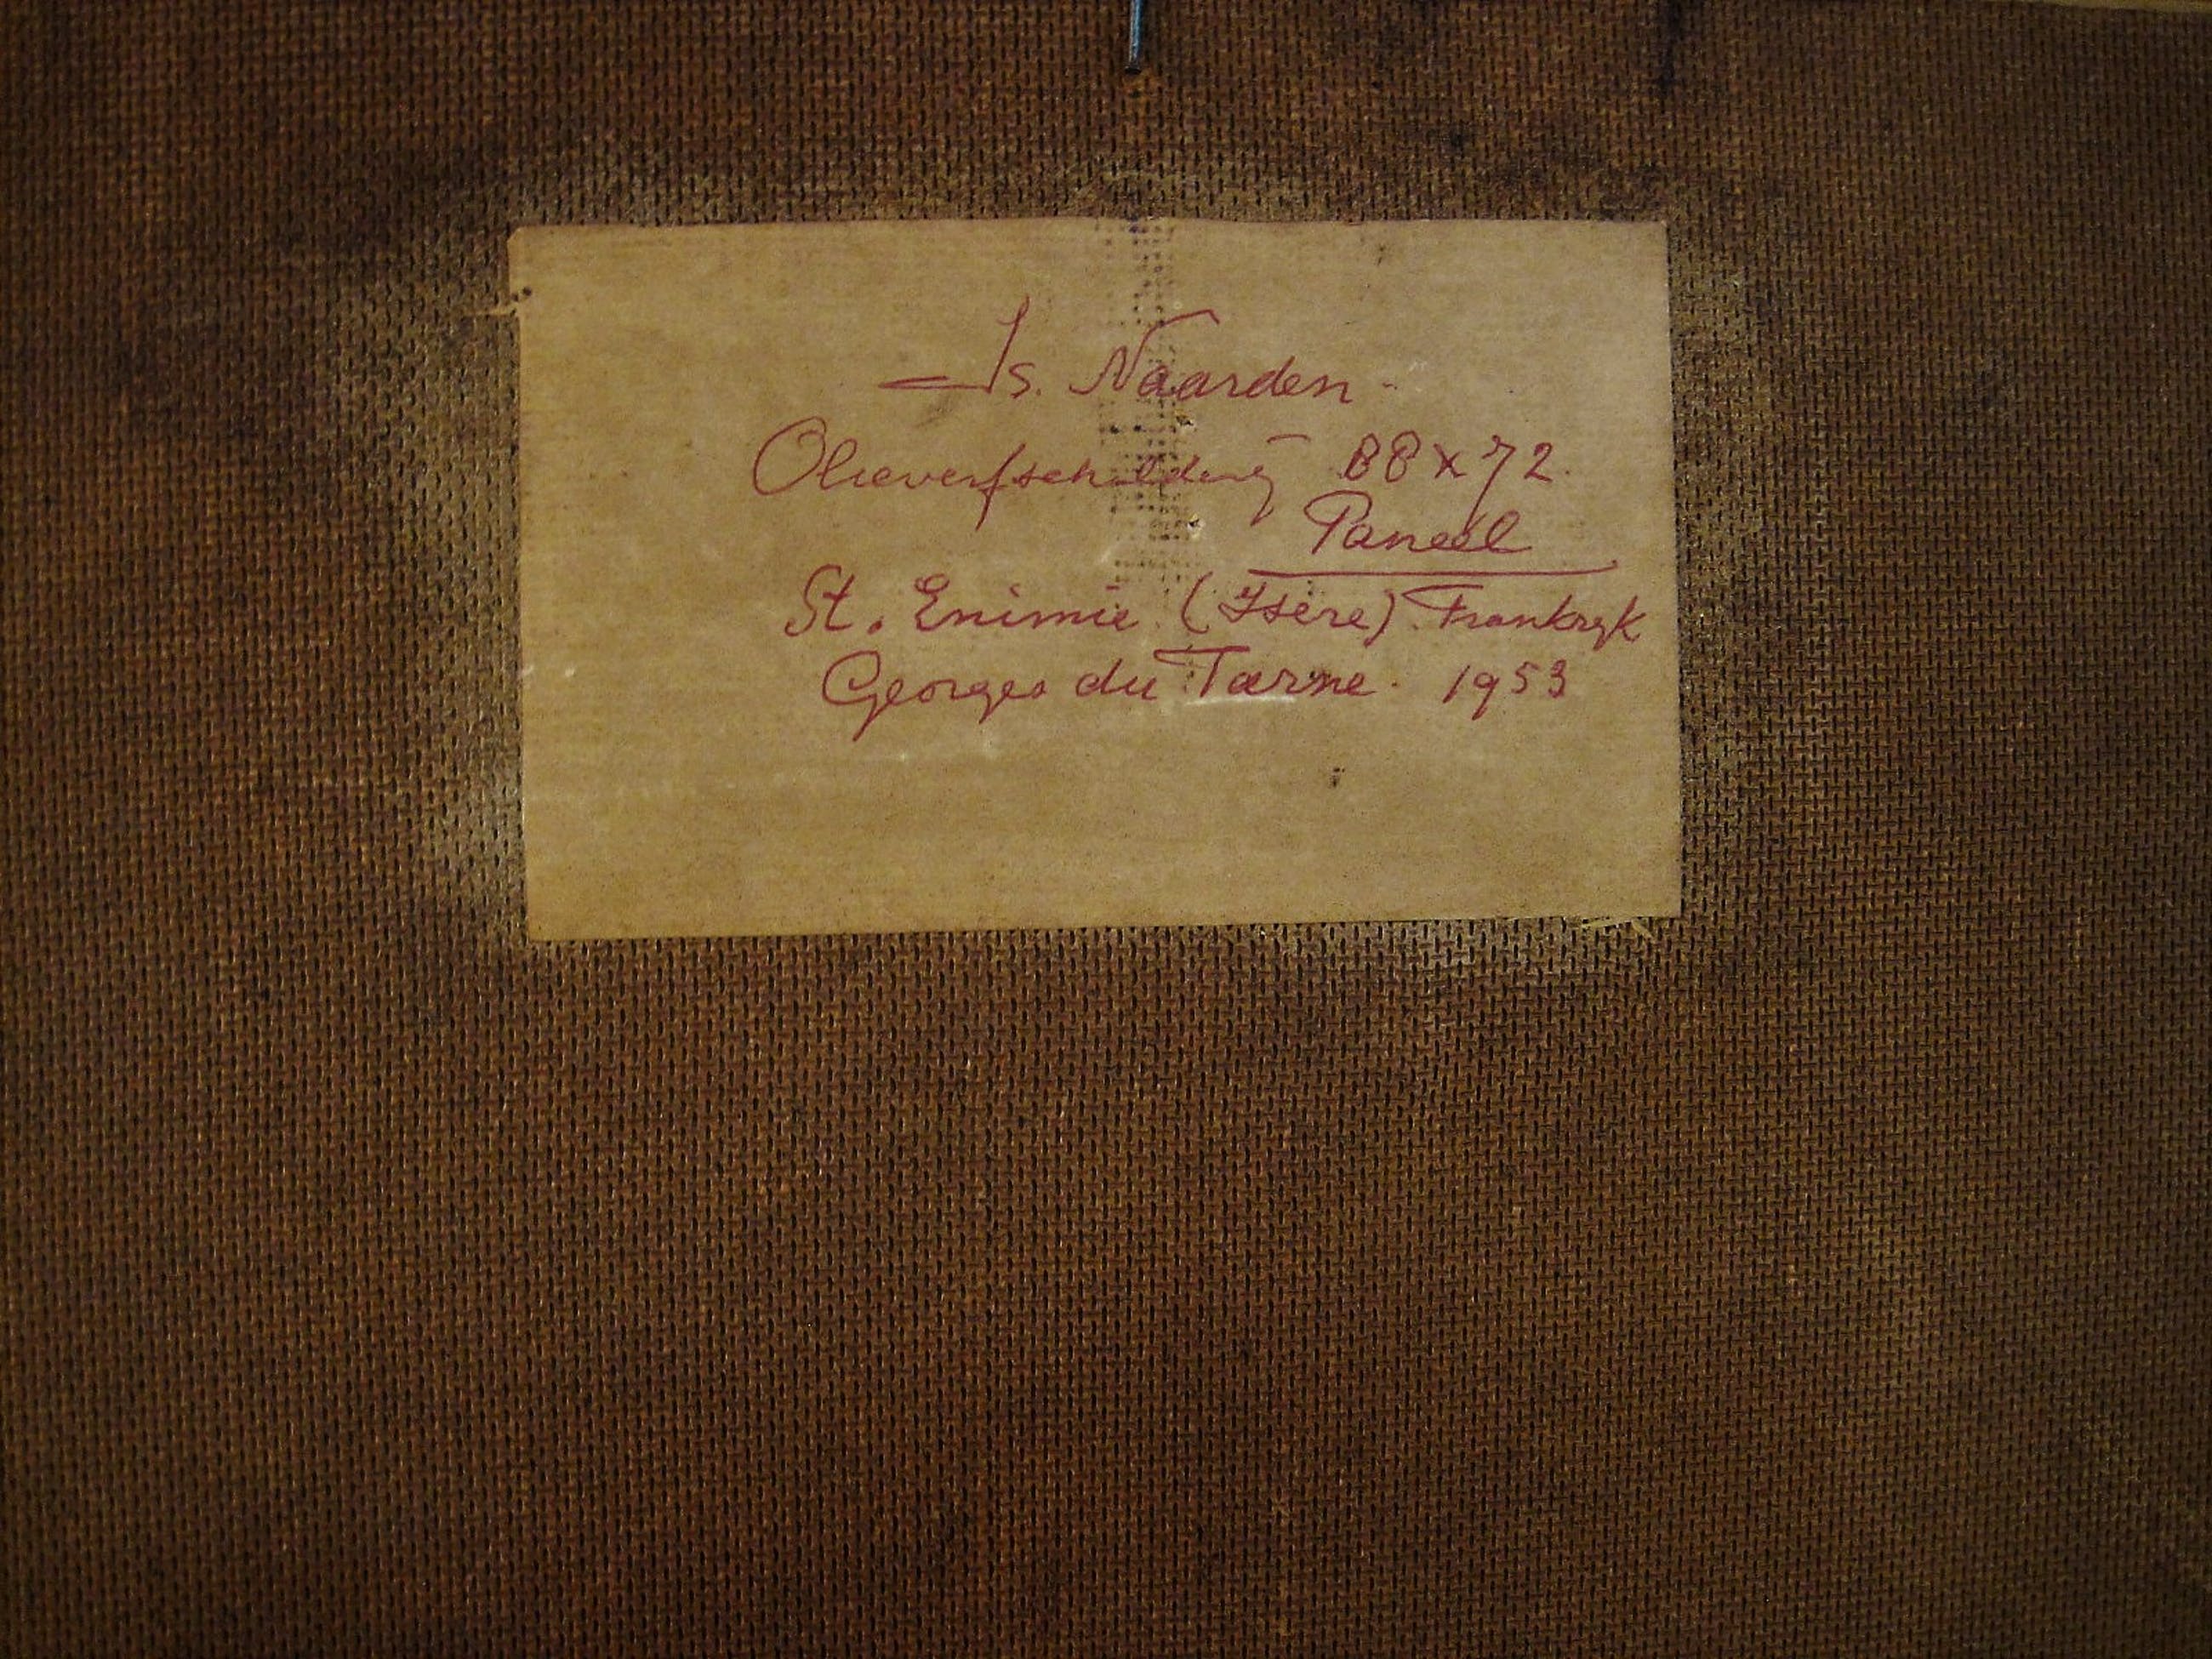 Is. Naarden -
Olieverfschildery 88 x 72.
Paneel
St. Enimie (Isère) Frankryk
Georges du Tarne. 1953